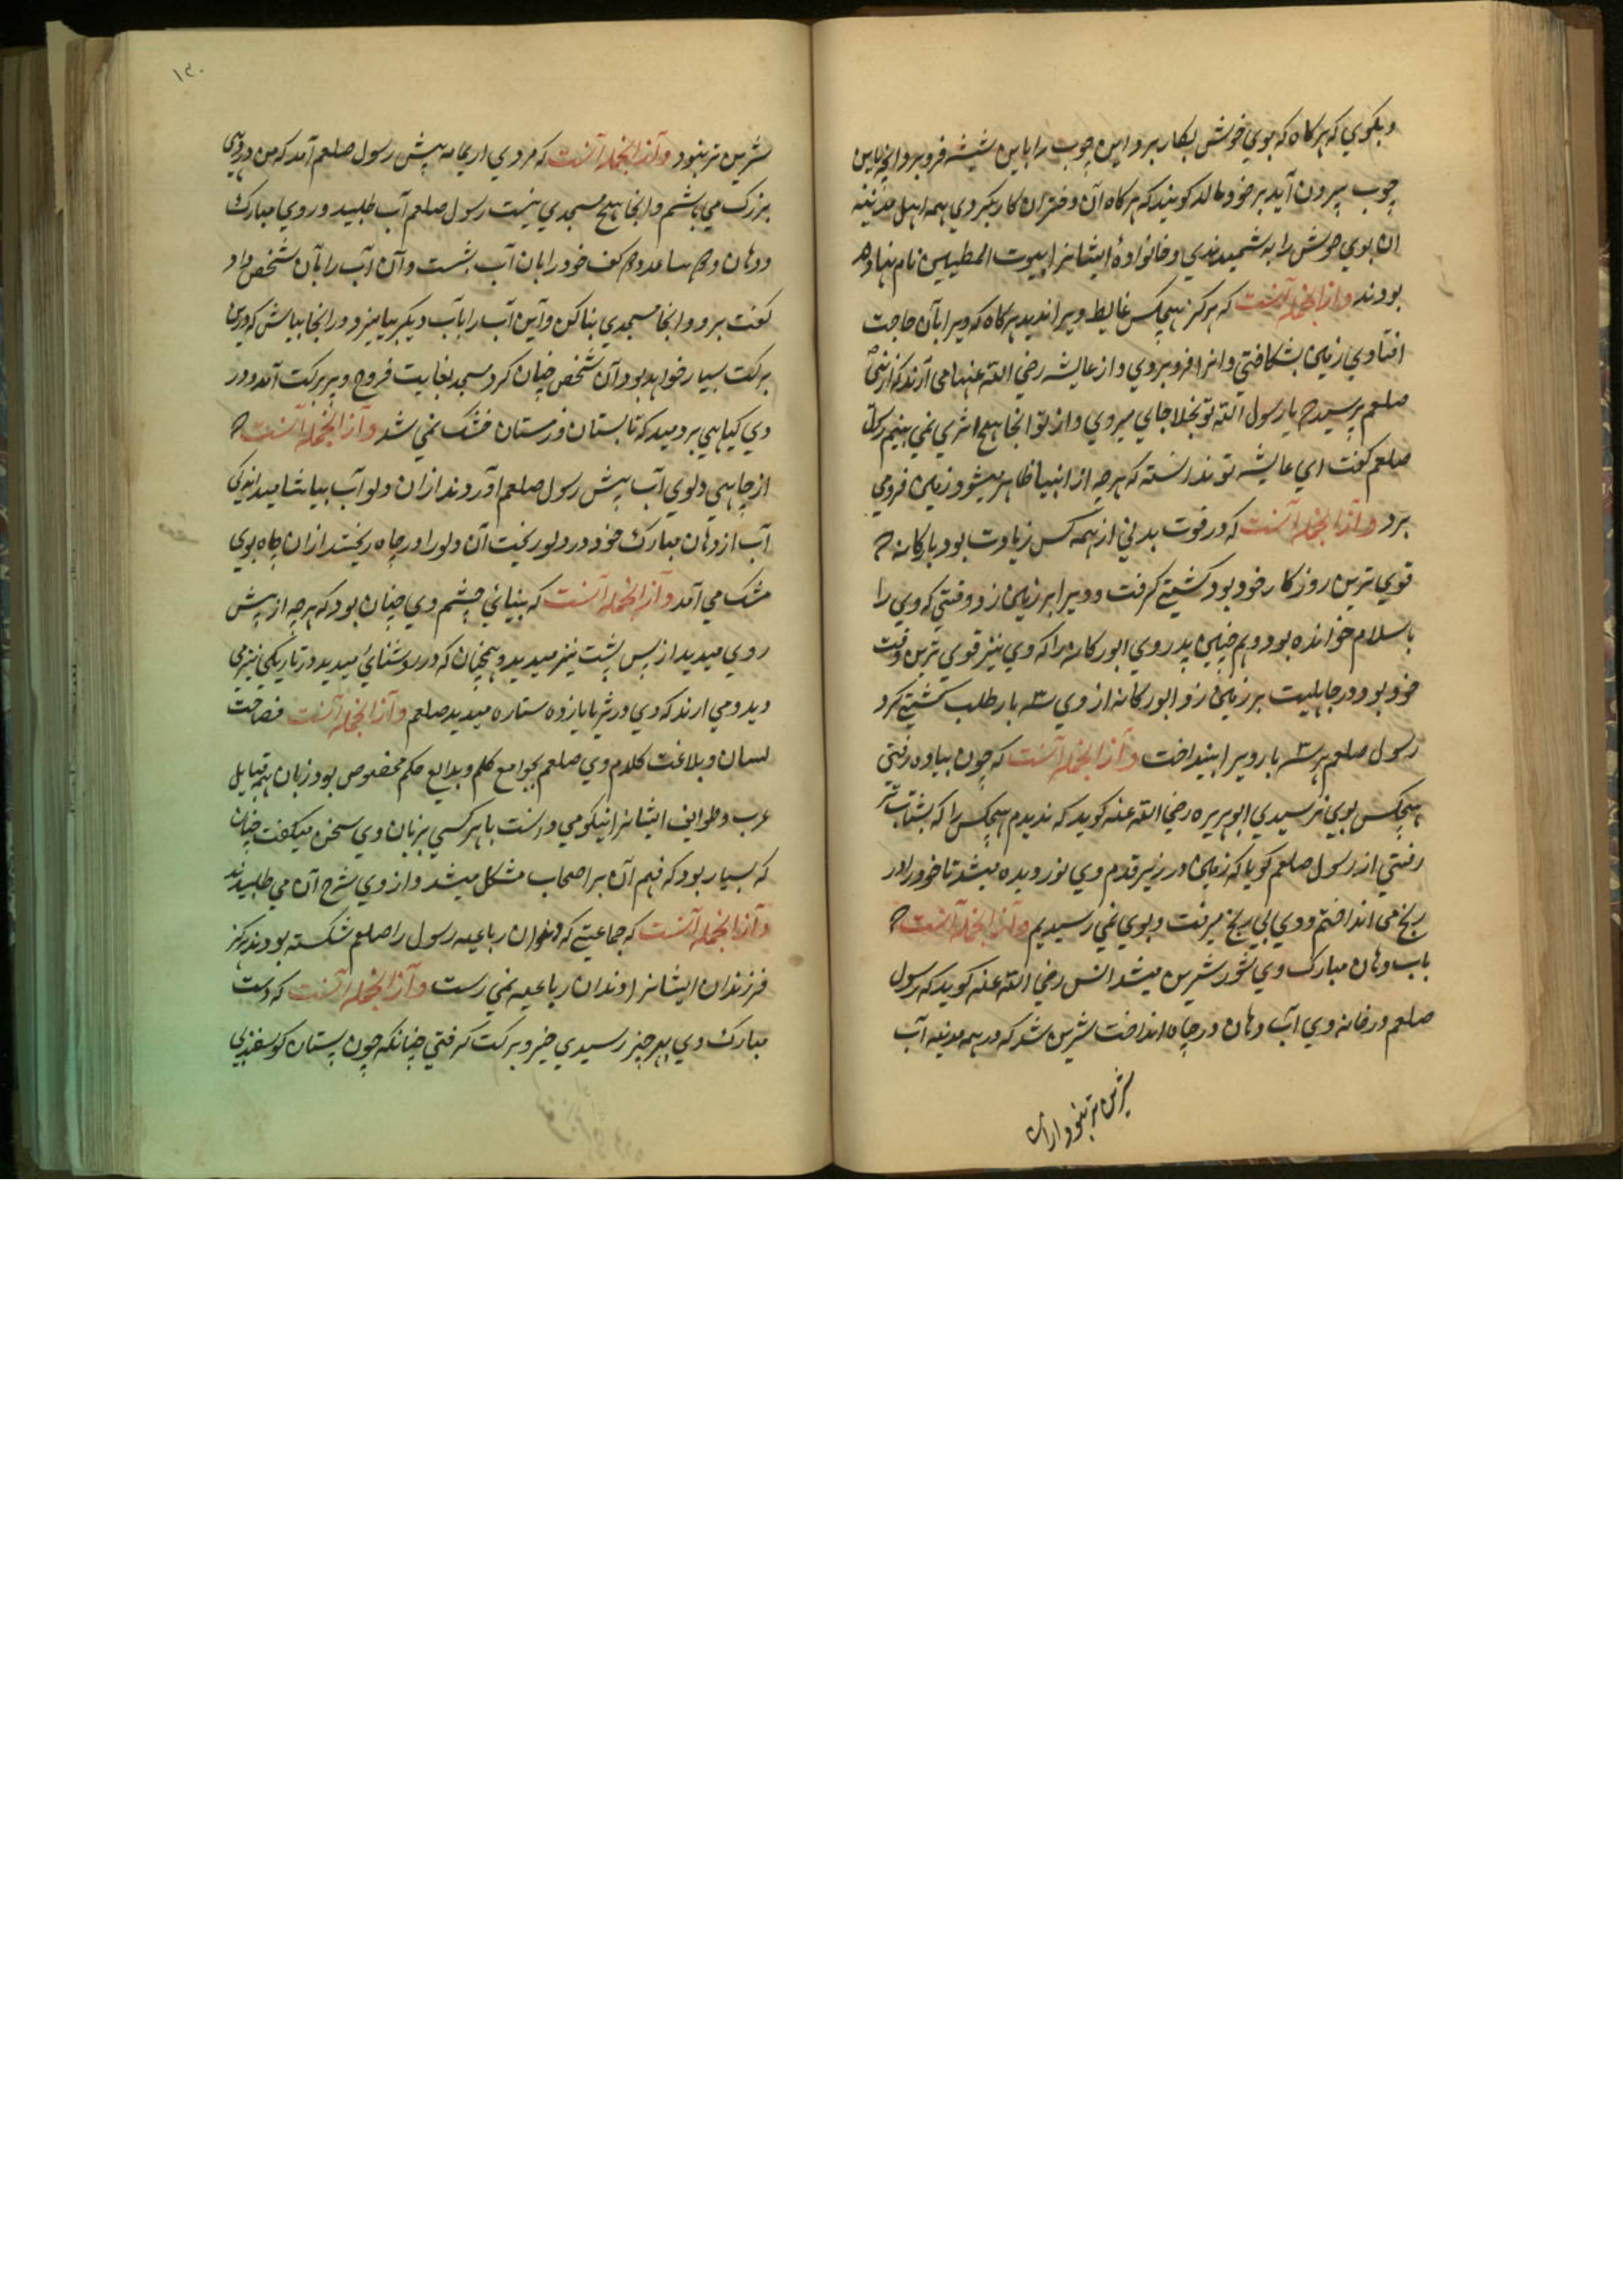 وبکوي که هرکاه که بوي خوش بکار برد این چوب را باین شیشه فروبرد وانچه باین
چوب بیرون آید بر خود مالد کویند که هرکاه آن دختران کار بکردي همه اهل مدینه
ان بوي خوش را به شمیدندي وخانوادۀ ایشانرا بیوت المطیبین نام نهاده
بودند وازانجمله آنست که هرکز هیچکس غایط ویرا ندید هرکاه که ویرا بآن حاجت
افتادي زمین بشکافتي وانرا فروبردي واز عایشه رضي الله عنها مي آرند که از نبی
صلعم پرسید یا رسول الله تو بخلا جاي میروي واز تو انجا هیچ اثري نمي بینیم رسول
صلعم کفت اي عایشه تو ندانسته که هرچه از انبیا ظاهر میشود زمین فرومي
برد وازانجمله آنست که در قوت بدني از همه کس زیادت بود با رکانه
قوي ترین روزکار خود بود کشتي کرفت وویرا بر زمین زد وقتي که وي را
باسلام خوانده بود وهم چنین پدر وي ابورکانه را که وي نیز قوي ترین وقت
خود بود در جاهلیت بر زمین زد وابورکانه از وي ۳ بار طلب کشتي کرد
رسول صلعم هر ۳ بار ویرا بینداخت وازانجمله آنست که چون پیاده رفتي
هیچکس بوي نرسیدي ابوهریره رضي الله عنه کوید که ندیدم هیچکس را که بشتاب تر
رفتي از رسول صلعم کویا که زمین در زیر قدم وي نوردیده میشد تا خود را در
رنج مي انداختم ووي بي رنج میرفت وبوي نمي رسیدیم وازانجمله آنست
باب دهان مبارک وي شور شیرین میشد انس رضي الله عنه کوید که رسول
صلعم در خانه وي آب دهان در چاه انداخت شیرین شد که در همه مدینه آب
شیرین تر نبود ازان
۱۳۰
شیرین تر نبود وازانجمله آنست که مردي از یمامه پیش رسول صلعم آمد که من در دیهي
بزرک مي باشم وانجا هیچ مسجدي نیست رسول صلعم آب طلبید وروي مبارک
ودهان وهر ساعد وهر کف خود را بان آب بشست وآن آب را بآن شخص داد
کفت برو وانجا مسجدي بنا کن وآین آب را بآب دیکر بیامیز ودر انجا بپاش که درین
برکت بسیار خواهد بود آن شخص چنان کرد مسجد بغایت فروح وپربرکت آمد ودر
وي کیاهي بردمید که تابستان وزمستان خشک نمي شد وازانجمله آنست
از چاهي دلوي آب پیش رسول صلعم آوردند ازان دلو آب بیاشامید اندکي
آب از دهان مبارک خود در دلو ریخت آن دلو را در چاه ریختند ازان چاه بوي
مشک مي آمد وازانجمله آنست که بینائي چشم وي چنان بود که هرچه از پیش
روي میدید از پس پشت نیز میدید وهمچنان که در روشنائي میدید در تاریکي نیز مي
دید ومي ارند که وي در ثریا یازده ستاره میدید صلعم وازانجمله آنست فصاحت
لسان وبلاغت کلام وي صلعم بجوامع کلم وبدایع حکم مخصوص بود زبان همه قبایل
عرب وطوایف ایشانرا نیکو مي دانست با هرکسي بزبان وي سخن میکفت چنان
که بسیار بود که فهم آن بر اصحاب مشکل میشد واز وي شرح آن مي طلبیدند
وازانجمله آنست که جماعتي که دندان رباعیه رسول را صلعم شکسته بودند هرکز
فرزندان ایشانرا دندان رباعیه نمي رست وازانجمله آنست که دست
مبارک وي بهر چیز رسیدي خیر وبرکت کرفتي چنانکه چون پستان کوسفند بي